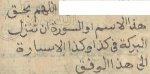 اللهم بحق
هذا الاسم او السورة ان تنزل
البركة في كذا وكذا الاسبارة
الى هذا الوفق